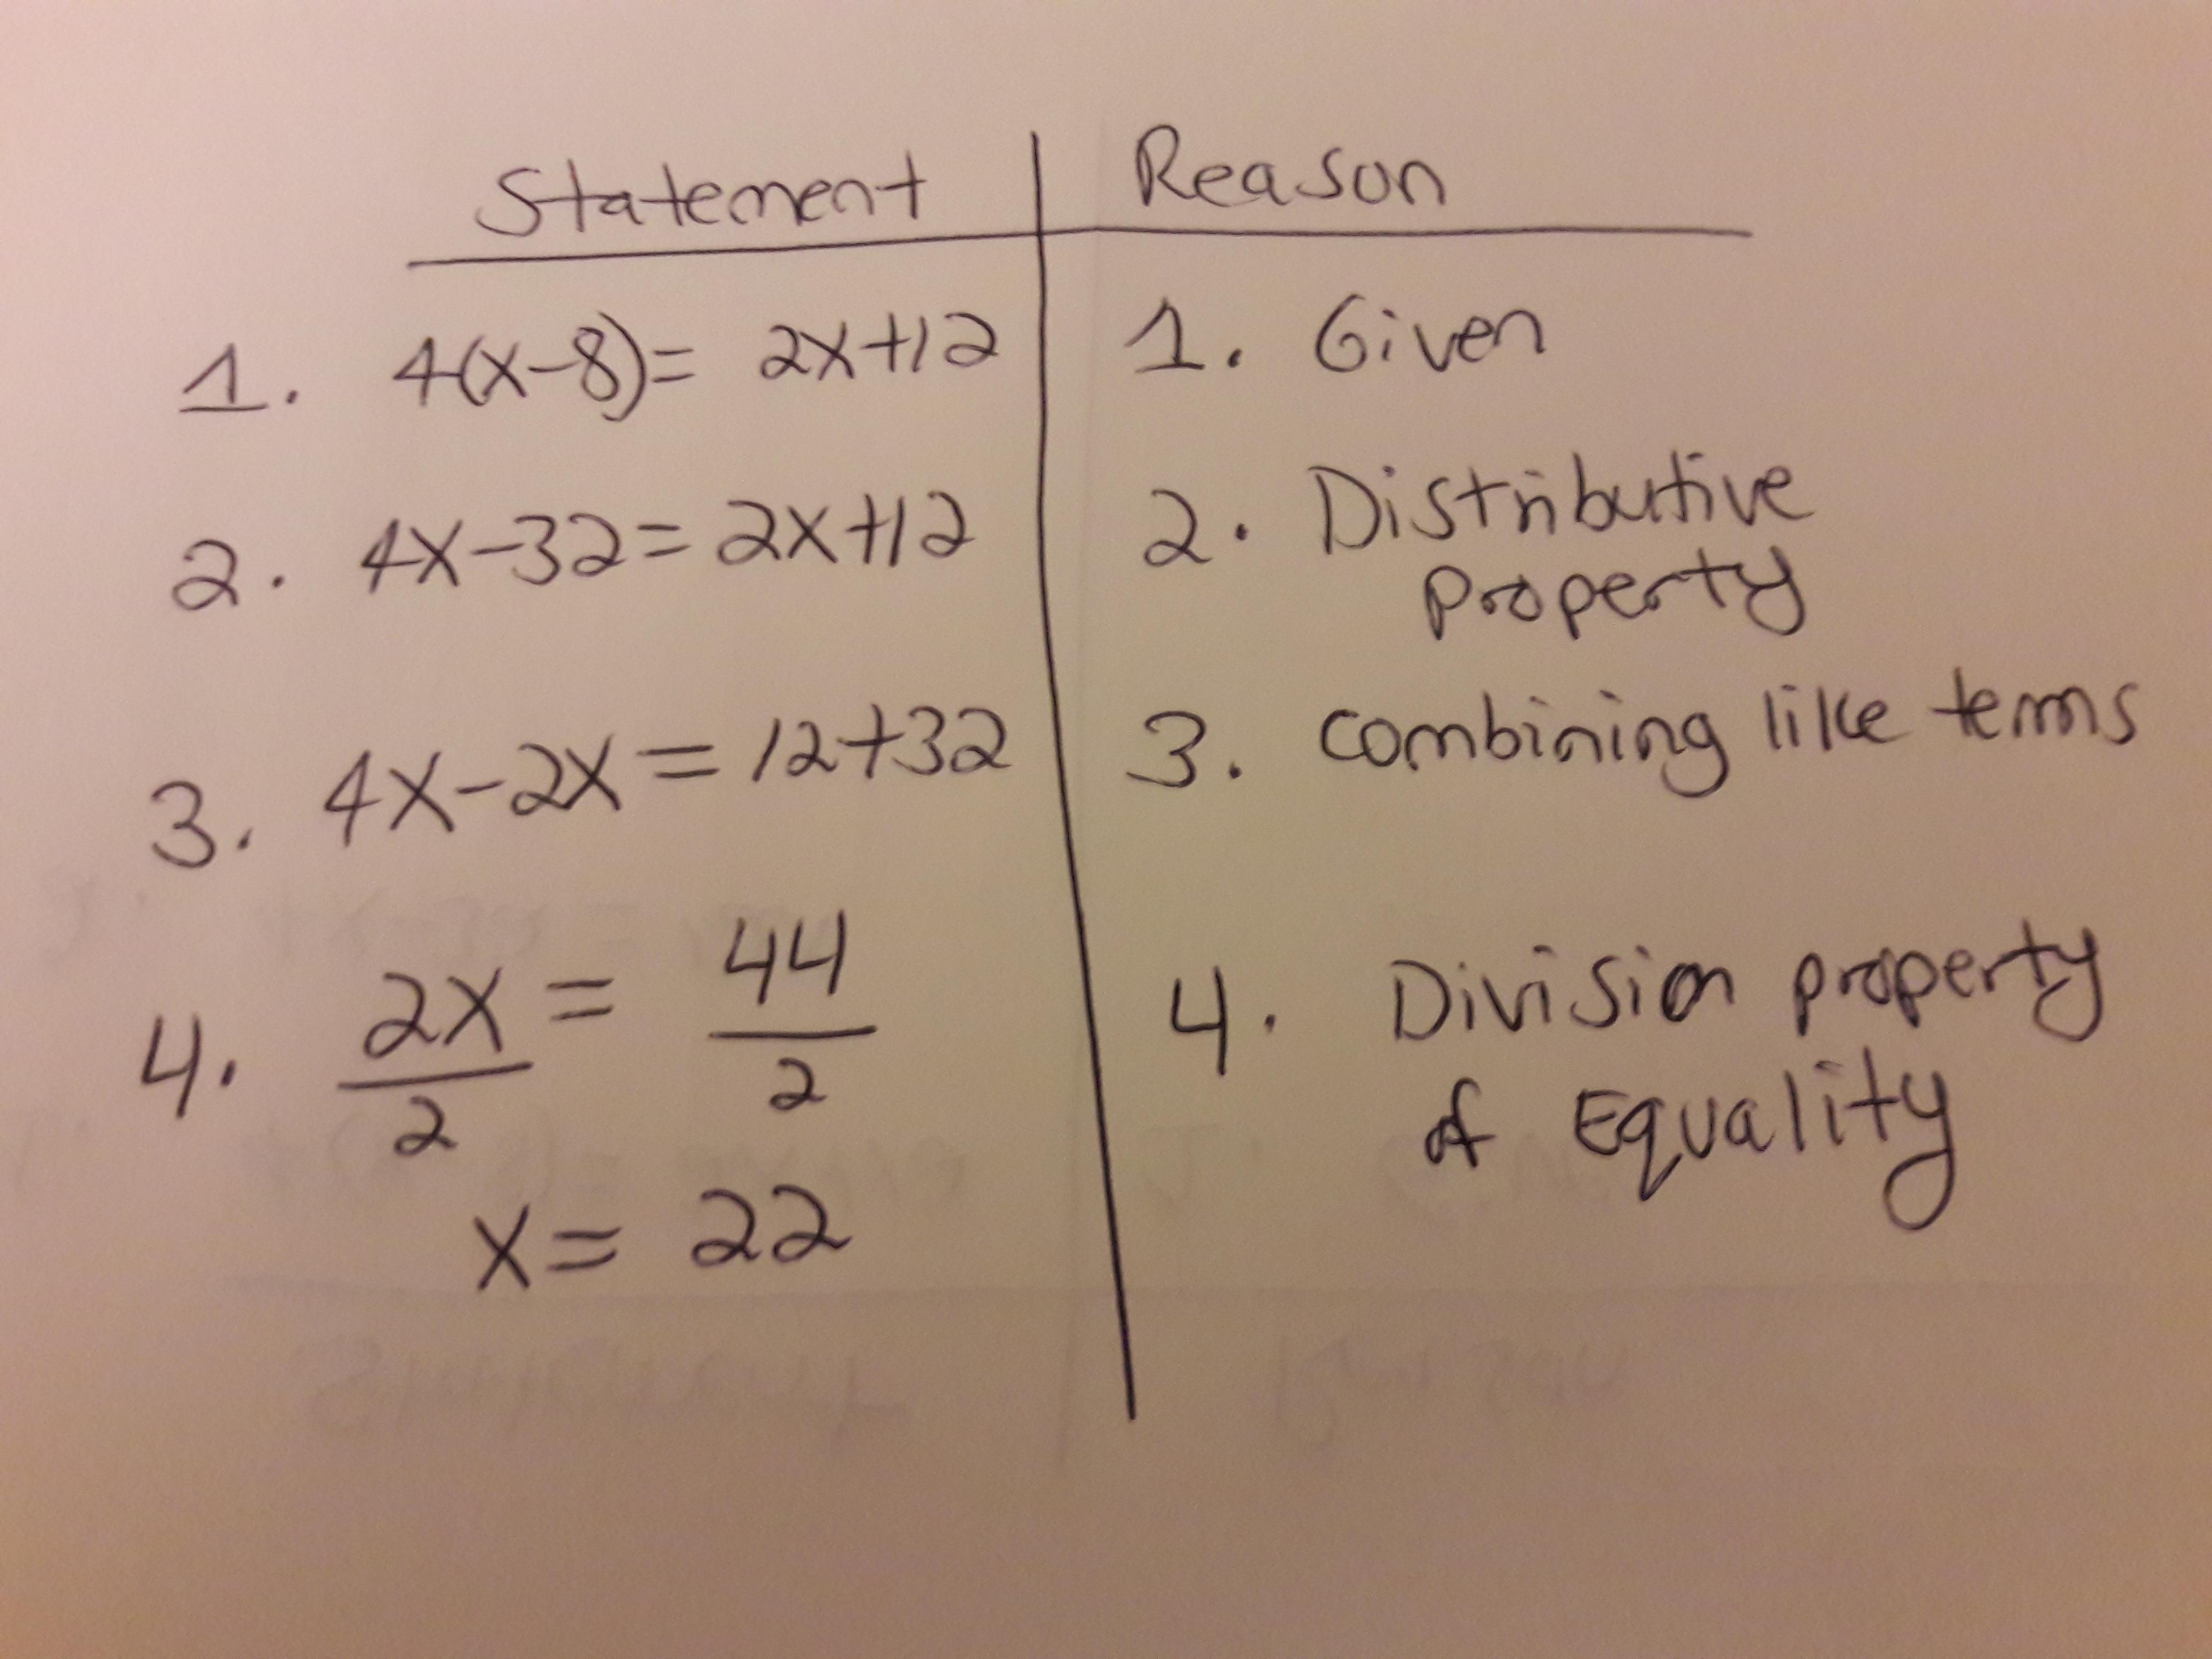 Statement
Reason
1. 4(x-8)= 2x+12
1. Given
2. 4x-32=2x+12
2. Distributive
Property
3. 4x-2x=12+32
3. combining like terms
4. 2x/2 = 44/2
4. Division property
of Equality
x= 22